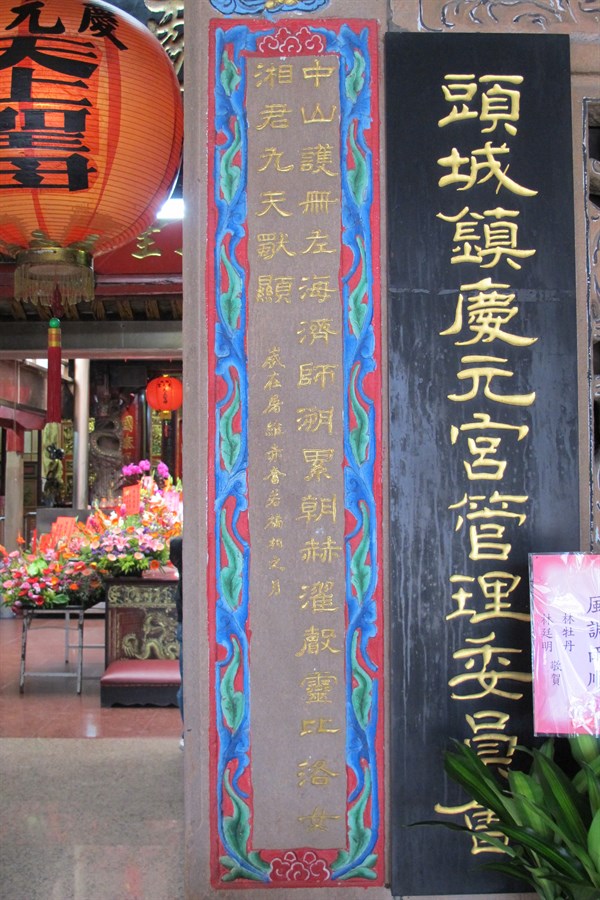 慶元
天上聖母
頭城鎮慶元宮管理委員會
中山護冊左海濟師溯累朝赫濯聲靈比洛女
湘君九天猷顯
歲在屠維赤奮若橘如之月
風調雨順
林牡丹
林廷明
敬賀